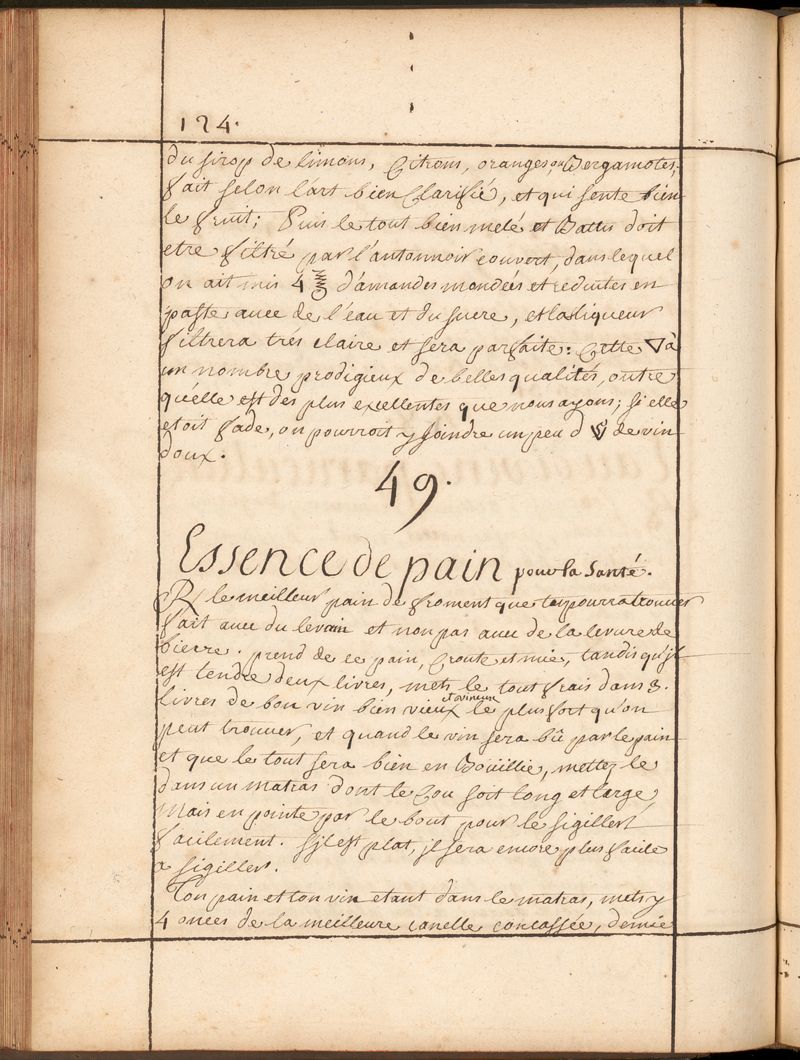 124.
du sirop de limons, Citrons, oranges, ou Bergamotes,
fait selon l'art bien Clarifié, et qui sente bien
le fruit; Puis le tout bien melé et Battu doit
etre filtré par l'antonnoir couvert, dans lequel
on ait mis 4 d'amandes mondées et reduites en
paste avec de l'eau et du sucre, et la liqueur
filtrera trés claire et sera parfaite: Cette ▽ à
un nombre prodigieux de belles qualités, outre
qu'elle est des plus excellentes que nous ayons; si elle
etoit fade, on pourroit y joindre un peu d de vin
doux.
49.
Essence de pain pour la Santé.
℞ le meilleur pain de froment que tu pourra trouver
fait avec du levain et non pas avec de la levure de
bierre. prend de ce pain, Croute et mie, tandis qu'jl
est tendre deux livres, mets le tout frais dans 3.
livres de bon vin bien vieux et vineux le plus fort qu'on
peut trouver, et quand le vin sera bû par le pain
et que le tout sera bien en Boüillie, mettez le
dans un matras dont le Cou soit long et large,
mais en pointe par le bout pour le sigiller
facilement. S'jl est plat, jl sera encore plus facile
a sigiller.
Ton pain et ton vin etant dans le matras, mets y
4 onces de la meilleure canelle concassée, demie